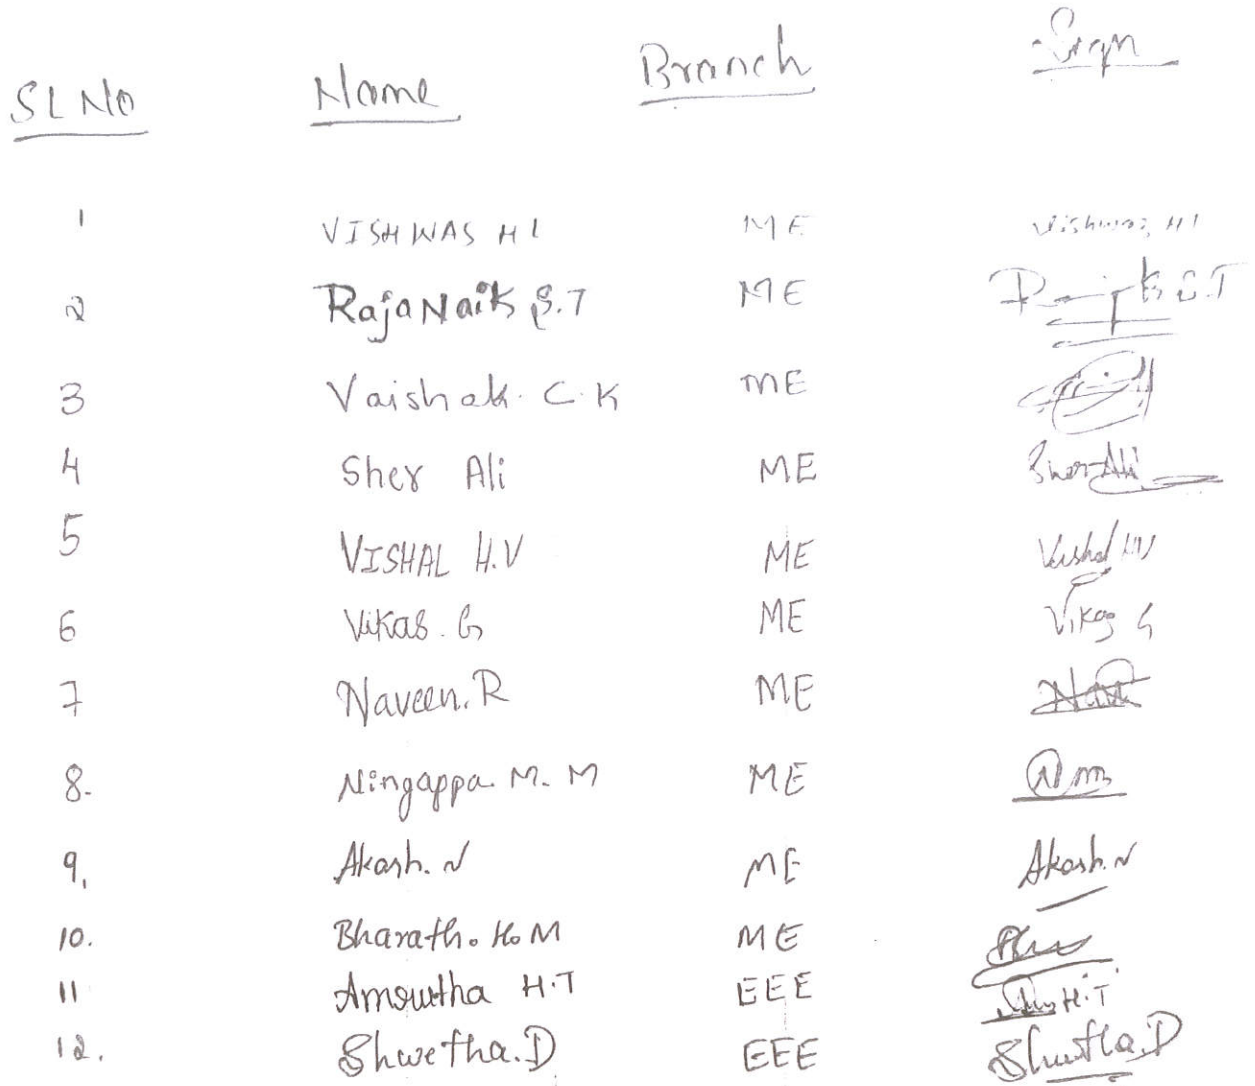 SL No Name Branch Sign
1 VISHWAS H L ME Vishwas H L
2 RajaNaik S.T ME
3 Vaishak. C. K ME
4 Sher Ali ME Sher Ali
5 VISHAL H.V ME Vishal HV
6 Vikas. G ME Vikas G
7 Naveen. R ME
8. Ningappa. M. M ME
9. Akash. N ME Akash. N
10. Bharath. H. M ME
11 Amrutha H.T EEE H.T
12. Shwetha. D EEE Shwetha. D